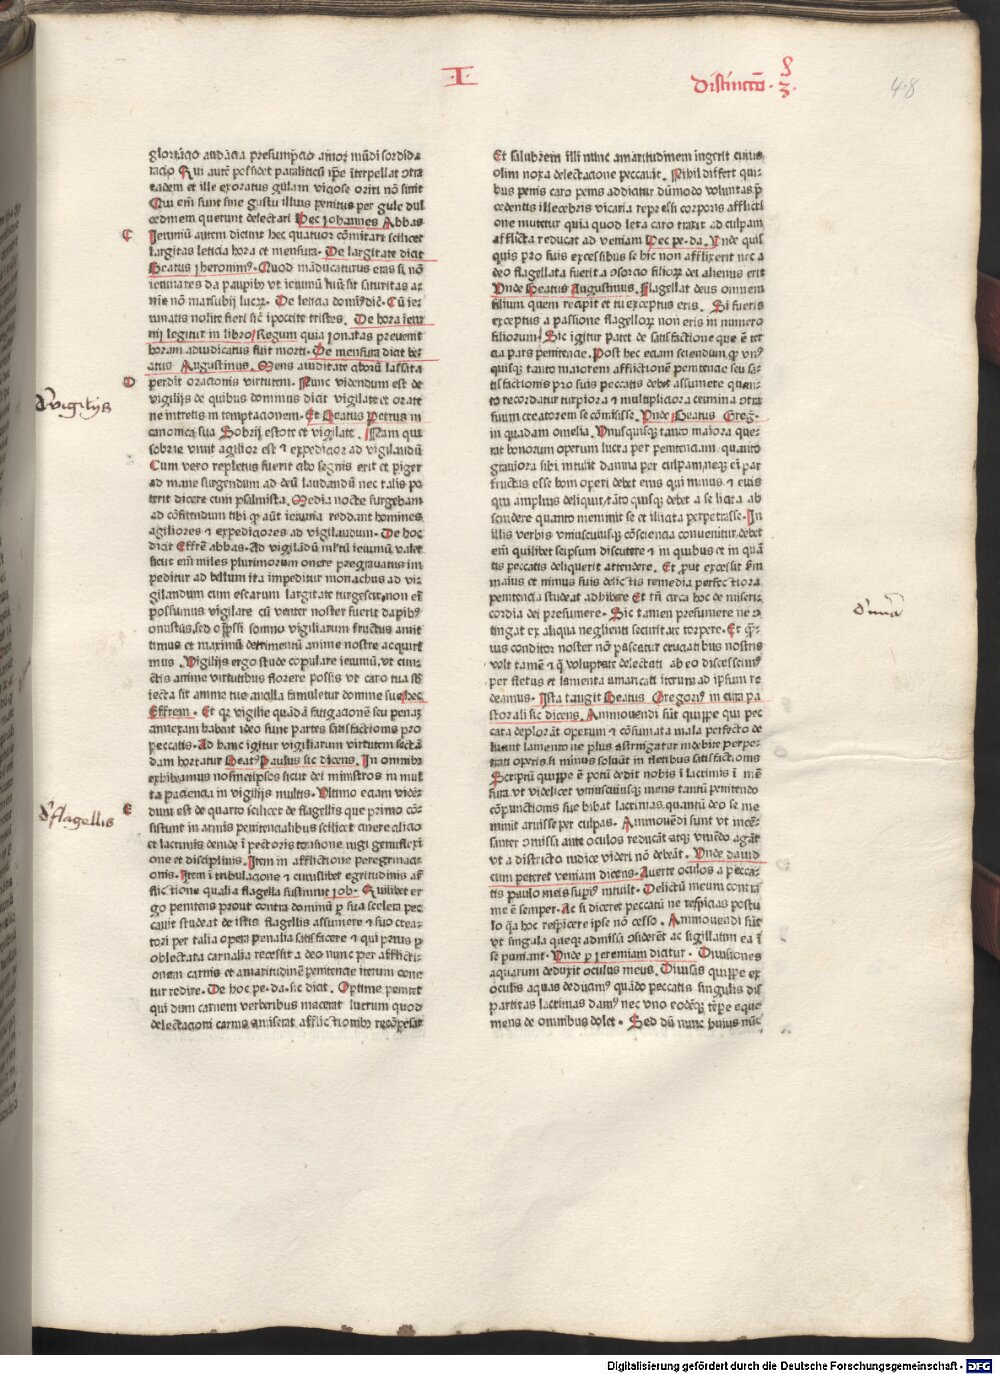 .I.
distinctio. 3.
48
gloriãcio audacia presumpcio amor mũdi sordida
racio Qui aute possidet paraliticũ ipse ĩterpellat ɔtra
eadem et ille exoratus gulam vigose oriri nõ sinit
Qui eñ sunt sine gustu illius penitus per gule dul
cedinem querunt delectari Hec Johannes Abbas
C Jeiuniũ autem dicunt hec quatuor cõmitari scilicet
largitas leticia hora et mensura. De largitate dicit
Beatus Jheronimꝰ. Quod māducaturus eras si nõ
ieiunares da paupibꝰ vt ieiuniũ tuũ sit saturitas a
nie nõ marsubij lucrũ. De leticia domĩꝰ dic̃. Cũ iei
iunatis nolite fieri sic̃ ipocrite tristes. De hora ieiu
nij legitur in libro Regum quia jonatas preuenit
horam adiudicatus fuit morti. De mensura dicit be
atus Augustinus. Mens auiditate ciborũ lassata
D perdit oracionis virtutem. Nunc videndum est de
vigilijs de quibus dominus dicit vigilate et orate
ne intretis in temptacionem. Et Beatus Petrus in
canonica sua Sobrij estote et vigilate. Nam qui
sobrie viuit agilior est ⁊ expedicior ad vigilandũ
Cum vero repletus fuerit cibo segnis erit et piger
ad mane surgendum ad deũ laudandũ nec talis po
terit dicere cum psalmista. Media nocte surgebam
ad cõfitendum tibi ꝙ aũt ieiunia reddant homines
agiliores ⁊ expediciores ad vigilandum. De hoc
dicit Effrē abbas. Ad vigilãdũ mltũ ieiuniũ valet
sicut eñ miles plurimorum onere pregrauatus im
peditur ad bellum ita impeditur monachus ad vi
gilandum cum escarum largitate turgescit, non eñ
possumus vigilare cũ venter noster fuerit dapibꝰ
onustus, sed oppssi somno vigiliarum fructus amit
timus et maximũ detrimentũ anime nostre acquiri
mus. Vigilijs ergo stude copulare ieiuniũ, vt cun
ctis anime virtutibus florere possis vt caro tua sb
iecta sit anime tue ancilla famuletur domine sue hec
Effrem. Et qꝛ vigilie quãdã fatigacionē seu penaȝ
annexam habent ideo sunt partes satisfactionis pro
peccatis. Ad hanc igitur vigiliarum virtutem sectã
dam hortatur Beatꝰ Paulus sic dicens. In omnibꝰ
exhibeamus nosmetipsos sicut dei ministros in mul
ta paciencia in vigilijs multis. Vltimo eciam vidē
E dum est de quarto scilicet de flagellis que primo cõ
sistunt in armis penitencialibus scilicet cinere cilicio
et lacrimis deinde ĩ pectoris tonsione iugi genuflexi
one et disciplinis. Item in afflictione peregrinaci
onis. Item ĩ tribulacione ⁊ cuiuslibet egritudinis af
flictione qualia flagella sustinuit job. Quilibet er
go penitens prout contra dominũ ꝑ sua scelera pec
cauit studeat de istis flagellis assumere ⁊ suo crea
tori per talia opera penalia satisfacere ⁊ qui prius ꝑ
oblectata carnalia recessit a deo nunc per afflicti
onem carnis et amaritudinē penitencie iterum cone
tur redire. De hoc pe. da. sic dicit. Optime penitet
qui dum carnem verberibus macerat lucrum quod
delectacioni carnis amiserat afflictionibꝰ recõpensat
d' vigilijs
d' flagellis
Et salubrem illi nunc amaritudinem ingerit cuius
olim noxa delectacione peccauit. Nichil differt qui
bus penis caro penis addicatur dũmodo voluntas ꝓ
cedentis illecebris vicaria repressi corporis afflicti
one mutetur quia quod leta caro traxit ad culpam
afflicta reducat ad veniam Hec pe. da. Vnde quis
quis pro suis excessibus se hic non afflixerit nec a
deo flagellata fuerit a ɔsorcio filioꝝ dei alienus erit
Vnde Beatus Augustinus. Flagellat deus omnem
filium quem recipit et tu exceptus eris. Si fueris
exceptus a passione flagelloꝝ non eris in numero
filiorum. Sic igitur patet de satisfactione que ē ter
cia pars penitencie. Post hec eciam sciendum ꝙ vnꝰ
quisqꝫ tanto maiorem afflictionē penitencie seu sa
tisfactionis pro suis peccatis debet assumere quan
to recordatur turpiora ⁊ multipliciora crimina ɔtra
suum creatorem se cõmisisse. Vnde Beatus Greg.
in quadam omelia. Vnusquisqꝫ tanto maiora que
rat bonorum operum lucra per penitenciam, quanto
grauiora sibi intulit damna per culpam, neqꝫ eñ par
fructus esse boni operi debet eius qui minus ⁊ eius
qui amplius deliquit, tãto quisqꝫ debet a se licita ab
scindere quanto meminit se et illicita perpetrasse. In
illis verbis vniuscuiusqꝫ cõsciencia conuenitur. debet
eñ quilibet seipsum discutere ⁊ in quibus et in quã
tis peccatis deliquerit attendere. Et ꝓut excessit scđm
maius et minus suis delictis remedia perfectiora
penitencia studeat adhibere Et tñ circa hoc de miseri
cordia dei presumere. Sic tamen presumere ne ɔ
tingat ex aliqua negligenti securitate torpere. Et ꝙ
uis conditor noster nõ pascatur cruciatibus nostris
volt tamē ⁊ ꝙ voluptate delectati ab eo discessimꝰ
per fletus et lamenta amaricati iterum ad ipsum re
deamus. Ista tangit Beatus Gregoriꝰ in cura pa
storali sic dicens. Ammouendi sũt quippe qui pec
cata deplorãt operum ⁊ cõsumata mala perfecto de
fleant lamento ne plus astringatur in debite perpe
trati operis si minus soluũt in fletibus satisfactionis
Scriptũ quippe ē potũ dedit nobis ĩ lacrimis ĩ mē
sura vt videlicet vniuscuiusqꝫ mens tantũ penitendo
cõpunctionis sue bibat lacrimas, quantũ deo se me
minit aruisse per culpas. Ammouēdi sunt vt incē
santer ɔmissa ante oculos reducãt atqꝫ viuēdo agãt
vt a districto iudice videri nõ debeãt. Vnde dauid
cum peteret veniam dicens. Auerte oculos a pecca
tis paulo meis suꝑiꝰ intulit. Delictũ meum contra
me ē semper. Ac si diceret peccatũ ne respicias postu
lo q̃a hoc respicere ipse nõ cesso. Ammouendi sũt
vt singula queqꝫ admissa ɔsiderēt ac sigillatim ea ĩ
se puniant. Vnde ꝑ jeremiam dicitur. Diuisiones
aquarum deduxit oculus meus. Diuisas quippe ex
oculis aquas deducimꝰ quãdo peccatis singulis dis
partitas lacrimas damꝰ nec vno eodēqꝫ tꝑe eque
mens de omnibus dolet. Sed dũ nunc huius nũc
Digitalisierung gefördert durch die Deutsche Forschungsgemeinschaft - DFG